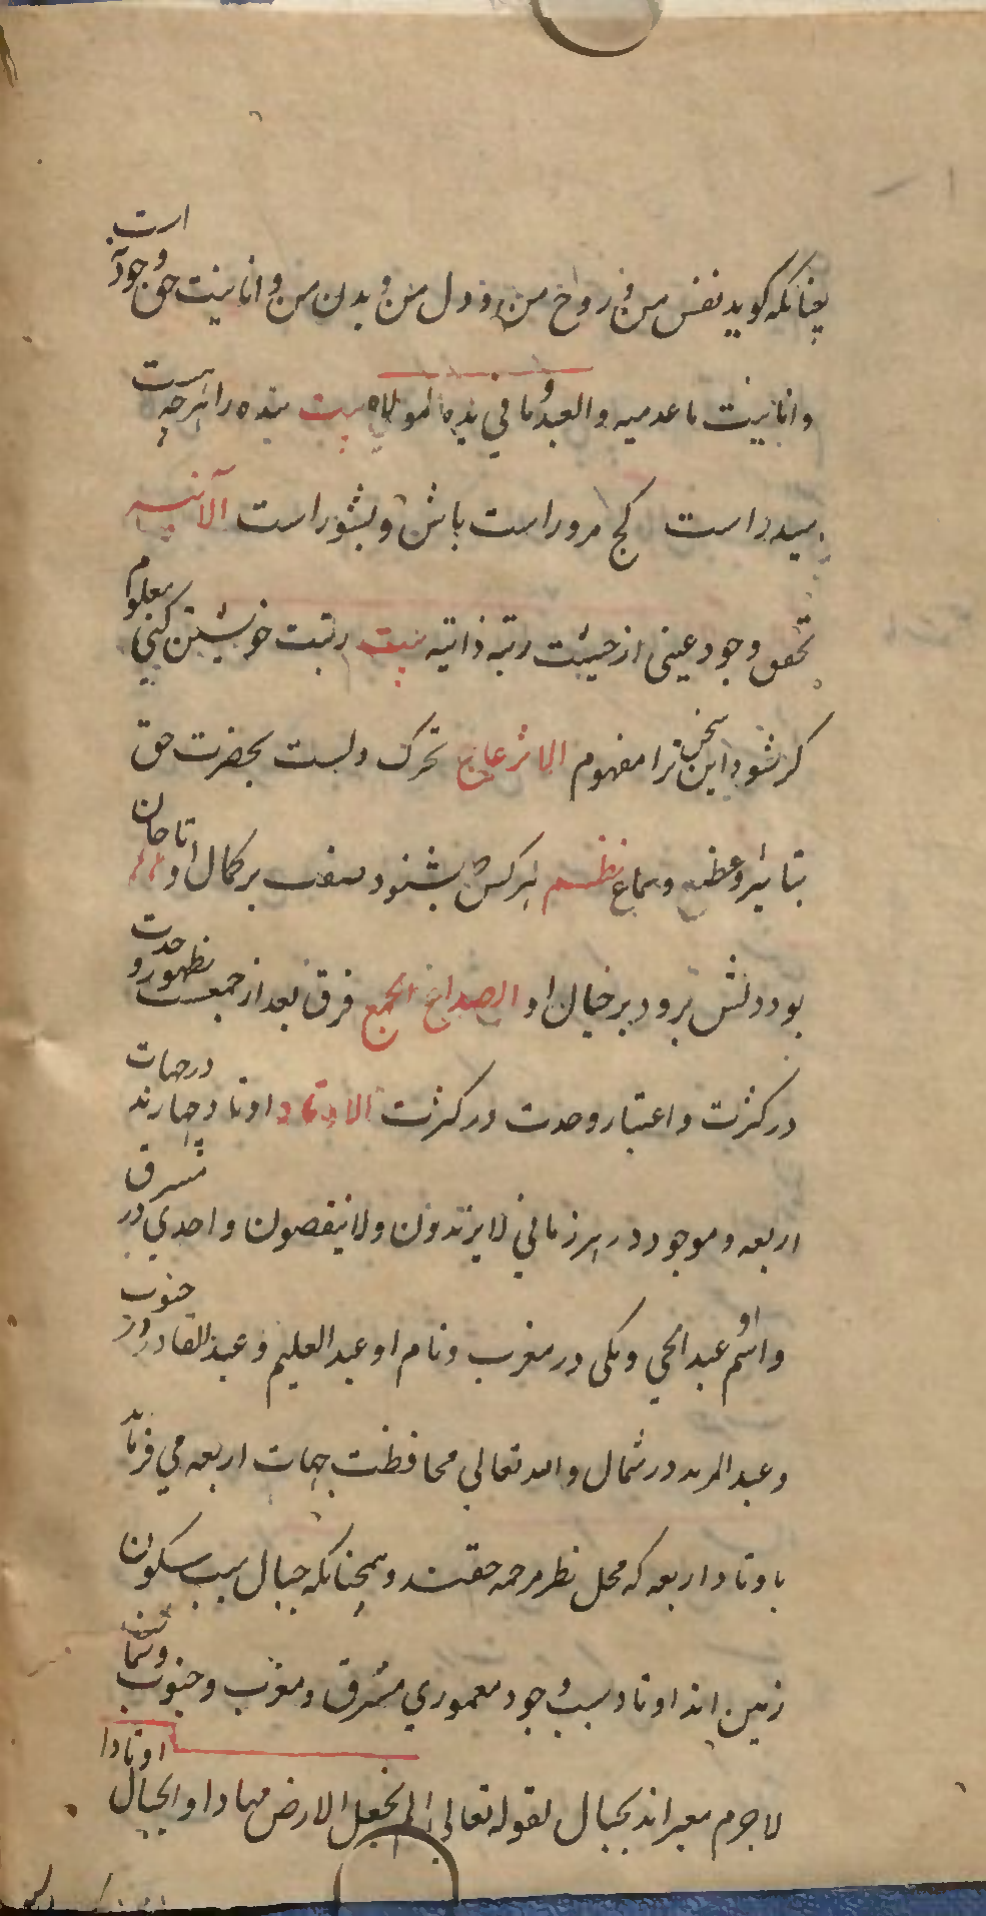 چنانکه کوید نفس من و روح من و دل من و بدن من و انانیت حق وجود است
و انانیت ما عدمیه و العبد و ما فی یده لمولاه بیت بنده را هرچه هست
میدر است کج مرو راست باش و بشنو راست الآنیه
تحقق وجود عینی از حیثیت رتبه ذاتیه بیت رتبت خویشتن کنی معلوم
کر شود این سخن ترا مفهوم الانزعاج تحرک دلست بحضرت حق
بتاثیر وعظ و سماع نظم هرکش بشنود بر کمال او تا جان
بود دلش برود بر خیال او انصداع الجمع فرق بعد از جمعست بظهور وحدت
در کثرت و اعتبار وحدت در کثرت الاوتاد اوتاد چهارند در جهات
اربعه و موجود در هر زمانی لا یزیدون و لا ینقصون واحدی در مشرق
و اسم او عبد الحی و یکی در مغرب و نام او عبد العلیم و عبد القادر در جنوب
و عبد المرید در شمال و الله تعالی محافظت جهات اربعه می فرماید
باوتاد اربعه که محل نظر مرحمه حقند و همچنانکه جبال سبب سکون
زمین اند اوتاد سبب وجود معموری مشرق و مغرب و جنوب و شمالند
لاجرم معبراند بجبال لقوله تعالی الم نجعل الارض مهادا و الجبال اوتادا